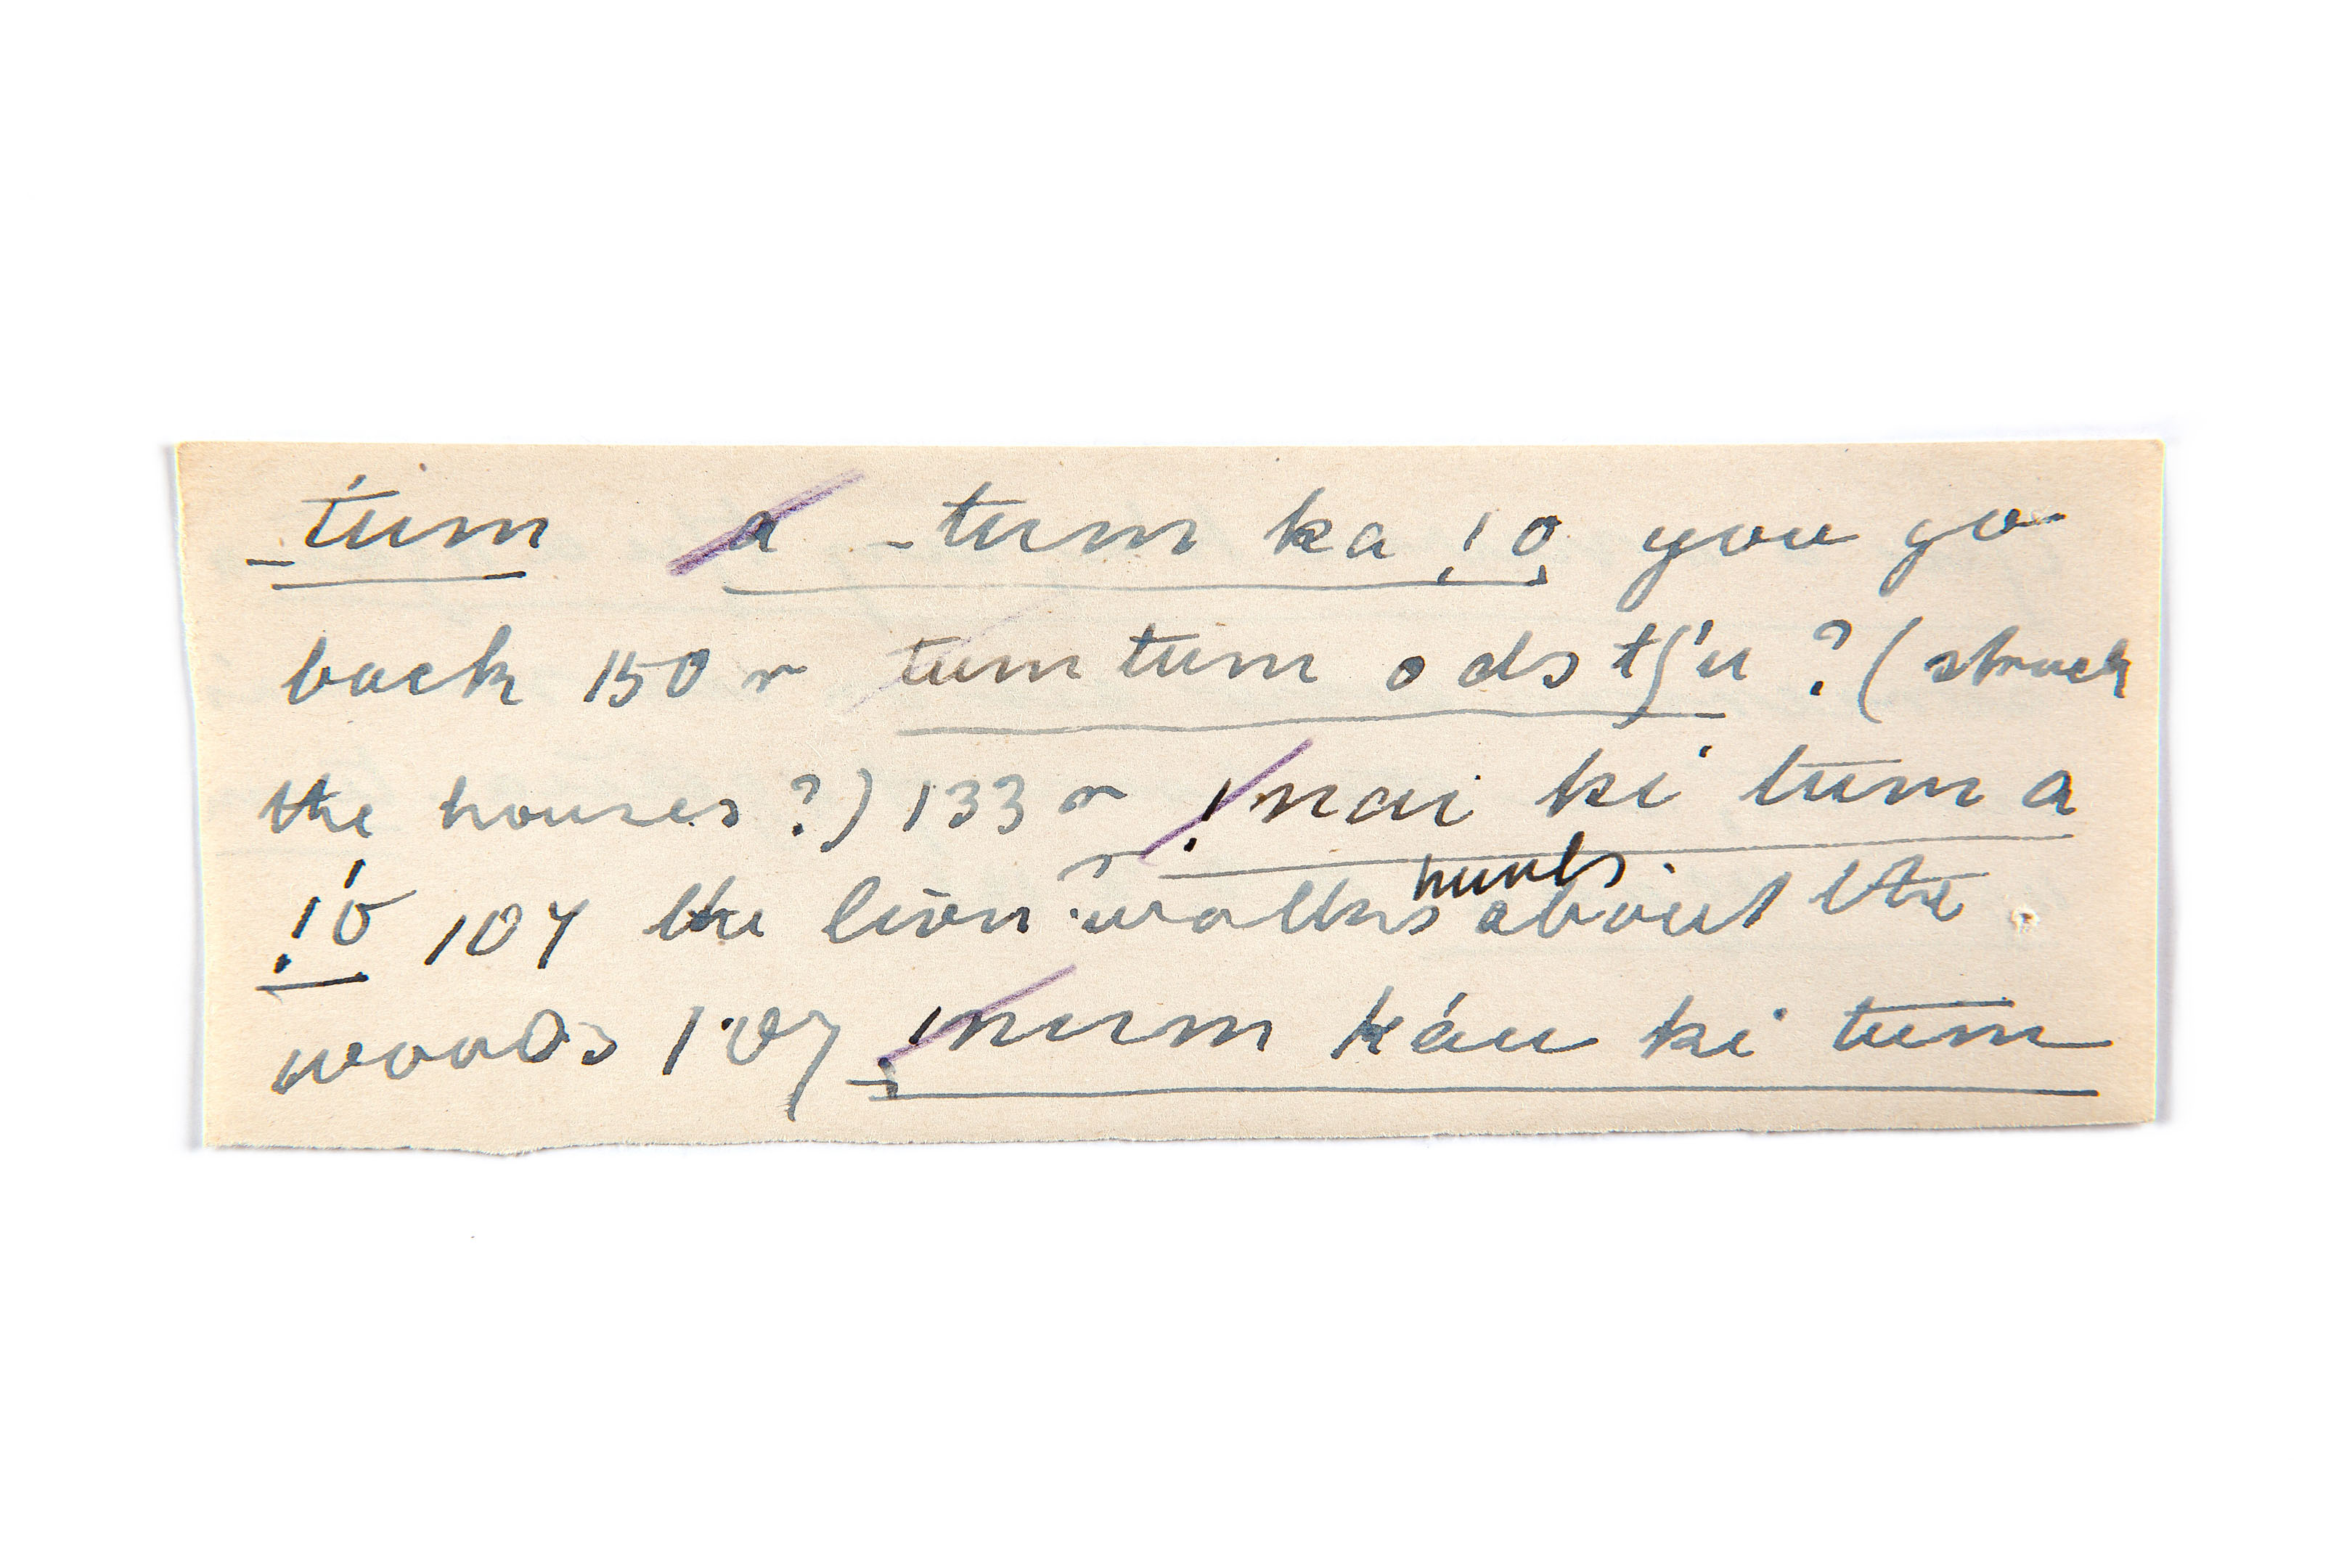 _túm a -tum ka !o you go
back 150 r tum tum o ds tʃ'u ? (struck
the houses ?) 133 r !nai ki tūm a
!ó 107 the lion walks hunts about the
woods 107 !num káu ki tūm